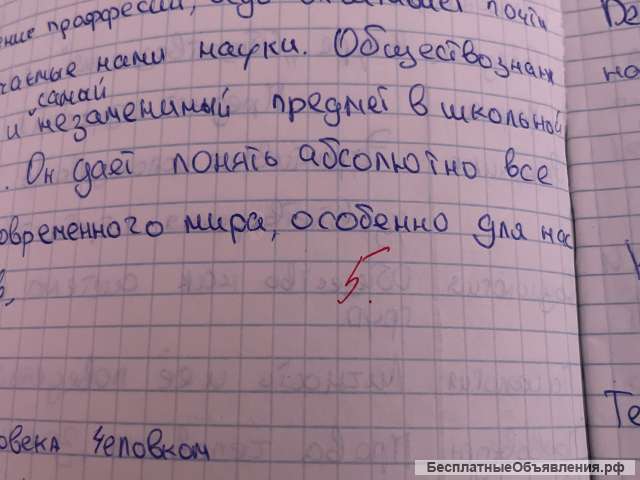 ение проффессии,
почти
чаемые нами науки. Обществознан
самай
и незаменимый предмет в школьной
. Он дает понять абсолютно все
овременного мира, особенно для нас
в,
5.
овека Человком
De
на
Те
БесплатныеОбъявления.рф